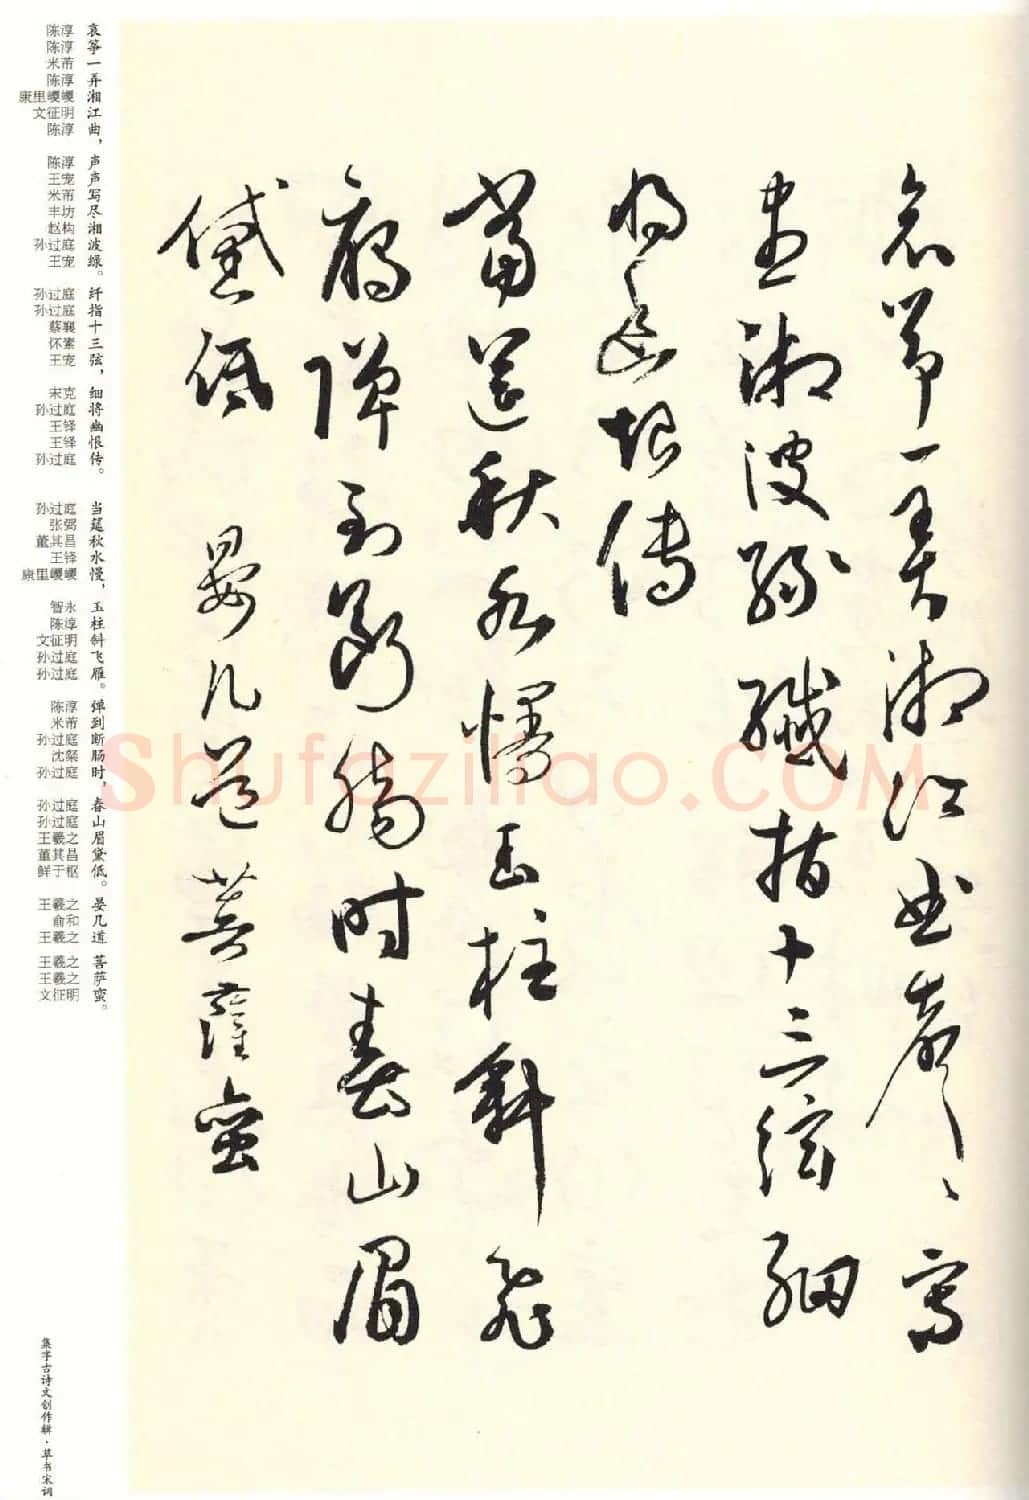 哀筝一弄湘江曲声〻写
尽湘波绿纤指十三弦细
将幽恨传
当筵秋水慢玉柱斜飞
雁弹到断肠时春山眉
黛低 晏几道菩萨蛮
哀 陈淳
筝 陈淳
一 米芾
弄 陈淳
湘 康里巎巎
江 文征明
曲， 陈淳
声 陈淳
声 王宠
写 米芾
尽 丰坊
湘 赵构
波 孙过庭
绿。 王宠
纤 孙过庭
指 孙过庭
十 蔡襄
三 怀素
弦， 王宠
细 宋克
将 孙过庭
幽 王铎
恨 王铎
传。 孙过庭
当 孙过庭
筵 张弼
秋 董其昌
水 王铎
慢， 康里巎巎
玉 智永
柱 陈淳
斜 文征明
飞 孙过庭
雁。 孙过庭
弹 陈淳
到 米芾
断 孙过庭
肠 沈粲
时， 孙过庭
春 孙过庭
山 孙过庭
眉 王羲之
黛 董其昌
低。 鲜于枢
晏 王羲之
几 俞和
道 王羲之
菩 王羲之
萨 王羲之
蛮。 文征明
集字古诗文创作辑·草书宋词
Shufaziliao.COM